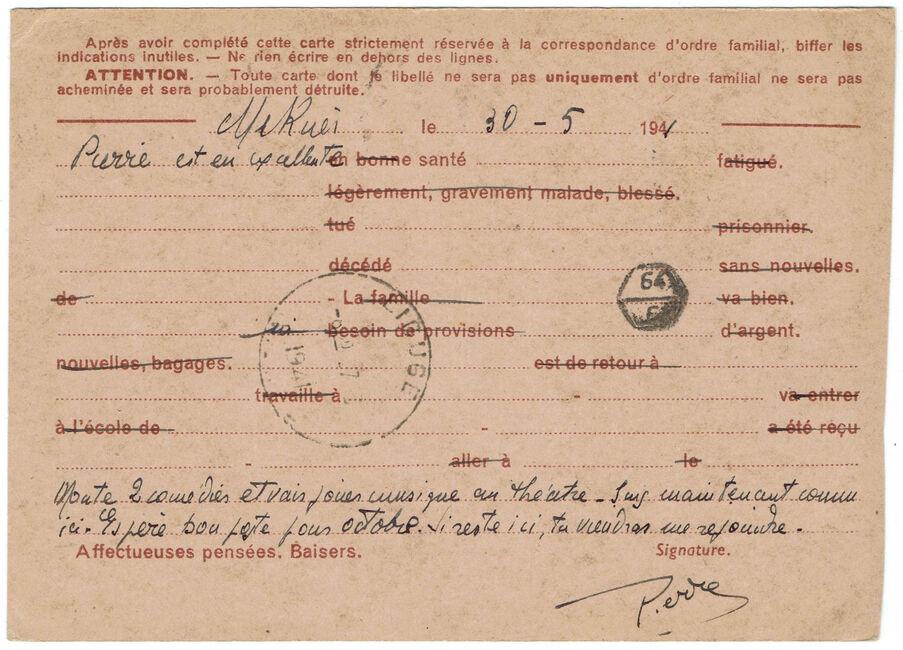 Après avoir complété cette carte strictement réservée à la correspondance d'ordre familial, biffer les
indications inutiles. — Ne rien écrire en dehors des lignes.
ATTENTION. — Toute carte dont le libellé ne sera pas uniquement d'ordre familial ne sera pas
acheminée et sera probablement détruite.
Meknès le 30 - 5 1941
Pierre est en excellente en bonne santé fatigué.
légèrement, gravement malade, blessé.
tué prisonnier.
décédé sans nouvelles.
de - La famille va bien.
besoin de provisions d'argent.
nouvelles, bagages. est de retour à
travaille à - va entrer
à l'école de - a été reçu
- aller à le
Monte 2 comédies et vais jouer musique au théâtre - Suis maintenant connu
ici. Espère bon poste pour octobre. Si reste ici, tu viendras me rejoindre.
Affectueuses pensées. Baisers. Signature.
Pierre
64
1941